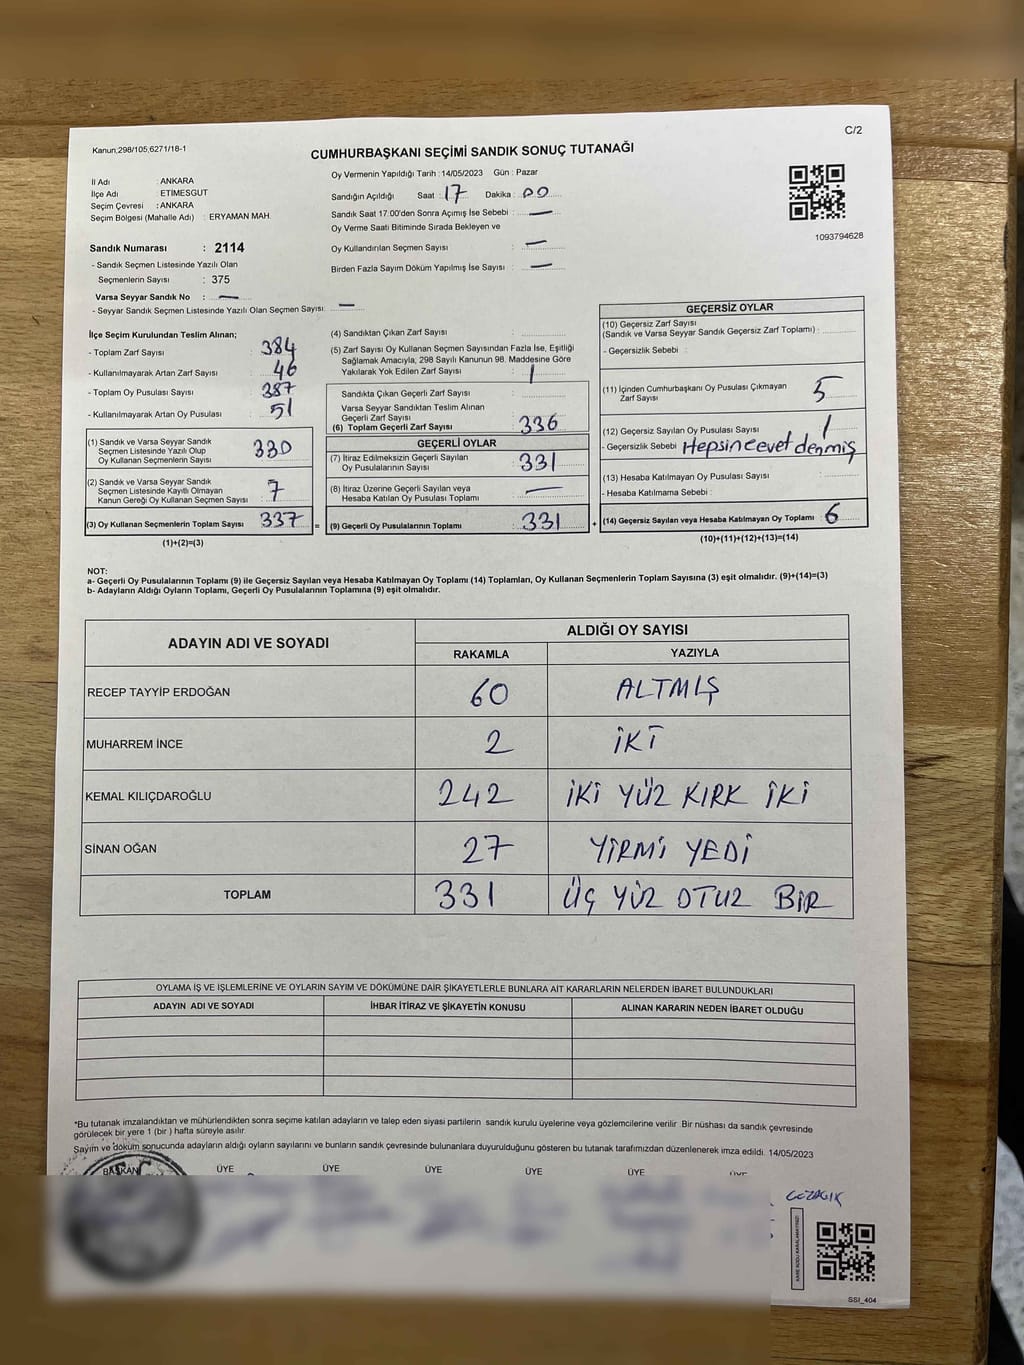 C/2
Kanun,298/105,6271/18-1
CUMHURBAŞKANI SEÇİMİ SANDIK SONUÇ TUTANAĞI
İl Adı : ANKARA
İlçe Adı : ETİMESGUT
Seçim Çevresi : ANKARA
Seçim Bölgesi (Mahalle Adı) : ERYAMAN MAH.
Sandık Numarası : 2114
- Sandık Seçmen Listesinde Yazılı Olan
Seçmenlerin Sayısı : 375
Varsa Seyyar Sandık No : —
- Seyyar Sandık Seçmen Listesinde Yazılı Olan Seçmen Sayısı: —
Oy Vermenin Yapıldığı Tarih : 14/05/2023 Gün : Pazar
Sandığın Açıldığı Saat : 17 Dakika : 00
Sandık Saat 17:00'den Sonra Açımış İse Sebebi : —
Oy Verme Saati Bitiminde Sırada Bekleyen ve
Oy Kullandırılan Seçmen Sayısı : —
Birden Fazla Sayım Döküm Yapılmış İse Sayısı : —
1093794628
İlçe Seçim Kurulundan Teslim Alınan;
- Toplam Zarf Sayısı : 384
- Kullanılmayarak Artan Zarf Sayısı : 46
- Toplam Oy Pusulası Sayısı : 387
- Kullanılmayarak Artan Oy Pusulası : 51
(1) Sandık ve Varsa Seyyar Sandık
Seçmen Listesinde Yazılı Olup
Oy Kullanan Seçmenlerin Sayısı : 330
(2) Sandık ve Varsa Seyyar Sandık
Seçmen Listesinde Kayıtlı Olmayan
Kanun Gereği Oy Kullanan Seçmen Sayısı : 7
(3) Oy Kullanan Seçmenlerin Toplam Sayısı : 337 =
(1)+(2)=(3)
(4) Sandıktan Çıkan Zarf Sayısı :
(5) Zarf Sayısı Oy Kullanan Seçmen Sayısından Fazla İse, Eşitliği
Sağlamak Amacıyla, 298 Sayılı Kanunun 98. Maddesine Göre
Yakılarak Yok Edilen Zarf Sayısı : 1
Sandıkta Çıkan Geçerli Zarf Sayısı :
Varsa Seyyar Sandıktan Teslim Alınan
Geçerli Zarf Sayısı :
(6) Toplam Geçerli Zarf Sayısı : 336
GEÇERLİ OYLAR
(7) İtiraz Edilmeksizin Geçerli Sayılan
Oy Pusulalarının Sayısı : 331
(8) İtiraz Üzerine Geçerli Sayılan veya
Hesaba Katılan Oy Pusulası Toplamı : —
(9) Geçerli Oy Pusulalarının Toplamı : 331 +
GEÇERSİZ OYLAR
(10) Geçersiz Zarf Sayısı
(Sandık ve Varsa Seyyar Sandık Geçersiz Zarf Toplamı) :
- Geçersizlik Sebebi :
(11) İçinden Cumhurbaşkanı Oy Pusulası Çıkmayan
Zarf Sayısı : 5
(12) Geçersiz Sayılan Oy Pusulası Sayısı : 1
- Geçersizlik Sebebi : Hepsine evet denmiş
(13) Hesaba Katılmayan Oy Pusulası Sayısı :
- Hesaba Katılmama Sebebi :
(14) Geçersiz Sayılan veya Hesaba Katılmayan Oy Toplamı : 6
(10)+(11)+(12)+(13)=(14)
NOT:
a- Geçerli Oy Pusulalarının Toplamı (9) ile Geçersiz Sayılan veya Hesaba Katılmayan Oy Toplamı (14) Toplamları, Oy Kullanan Seçmenlerin Toplam Sayısına (3) eşit olmalıdır. (9)+(14)=(3)
b- Adayların Aldığı Oyların Toplamı, Geçerli Oy Pusulalarının Toplamına (9) eşit olmalıdır.
ADAYIN ADI VE SOYADI ALDIĞI OY SAYISI
RAKAMLA YAZIYLA
RECEP TAYYİP ERDOĞAN 60 ALTMIŞ
MUHARREM İNCE 2 İKİ
KEMAL KILIÇDAROĞLU 242 İKİ YÜZ KIRK İKİ
SİNAN OĞAN 27 YİRMİ YEDİ
TOPLAM 331 ÜÇ YÜZ OTUZ BİR
OYLAMA İŞ VE İŞLEMLERİNE VE OYLARIN SAYIM VE DÖKÜMÜNE DAİR ŞİKAYETLERLE BUNLARA AİT KARARLARIN NELERDEN İBARET BULUNDUKLARI
ADAYIN ADI VE SOYADI İHBAR İTİRAZ VE ŞİKAYETİN KONUSU ALINAN KARARIN NEDEN İBARET OLDUĞU
*Bu tutanak imzalandıktan ve mühürlendikten sonra seçime katılan adayların ve talep eden siyasi partilerin sandık kurulu üyelerine veya gözlemcilerine verilir. Bir nüshası da sandık çevresinde
görülecek bir yere 1 (bir ) hafta süreyle asılır.
Sayım ve döküm sonucunda adayların aldığı oyların sayılarını ve bunların sandık çevresinde bulunanlara duyurulduğunu gösteren bu tutanak tarafımızdan düzenlenerek imza edildi. 14/05/2023
BAŞKAN ÜYE ÜYE ÜYE ÜYE ÜYE ÜYE
SSI_404